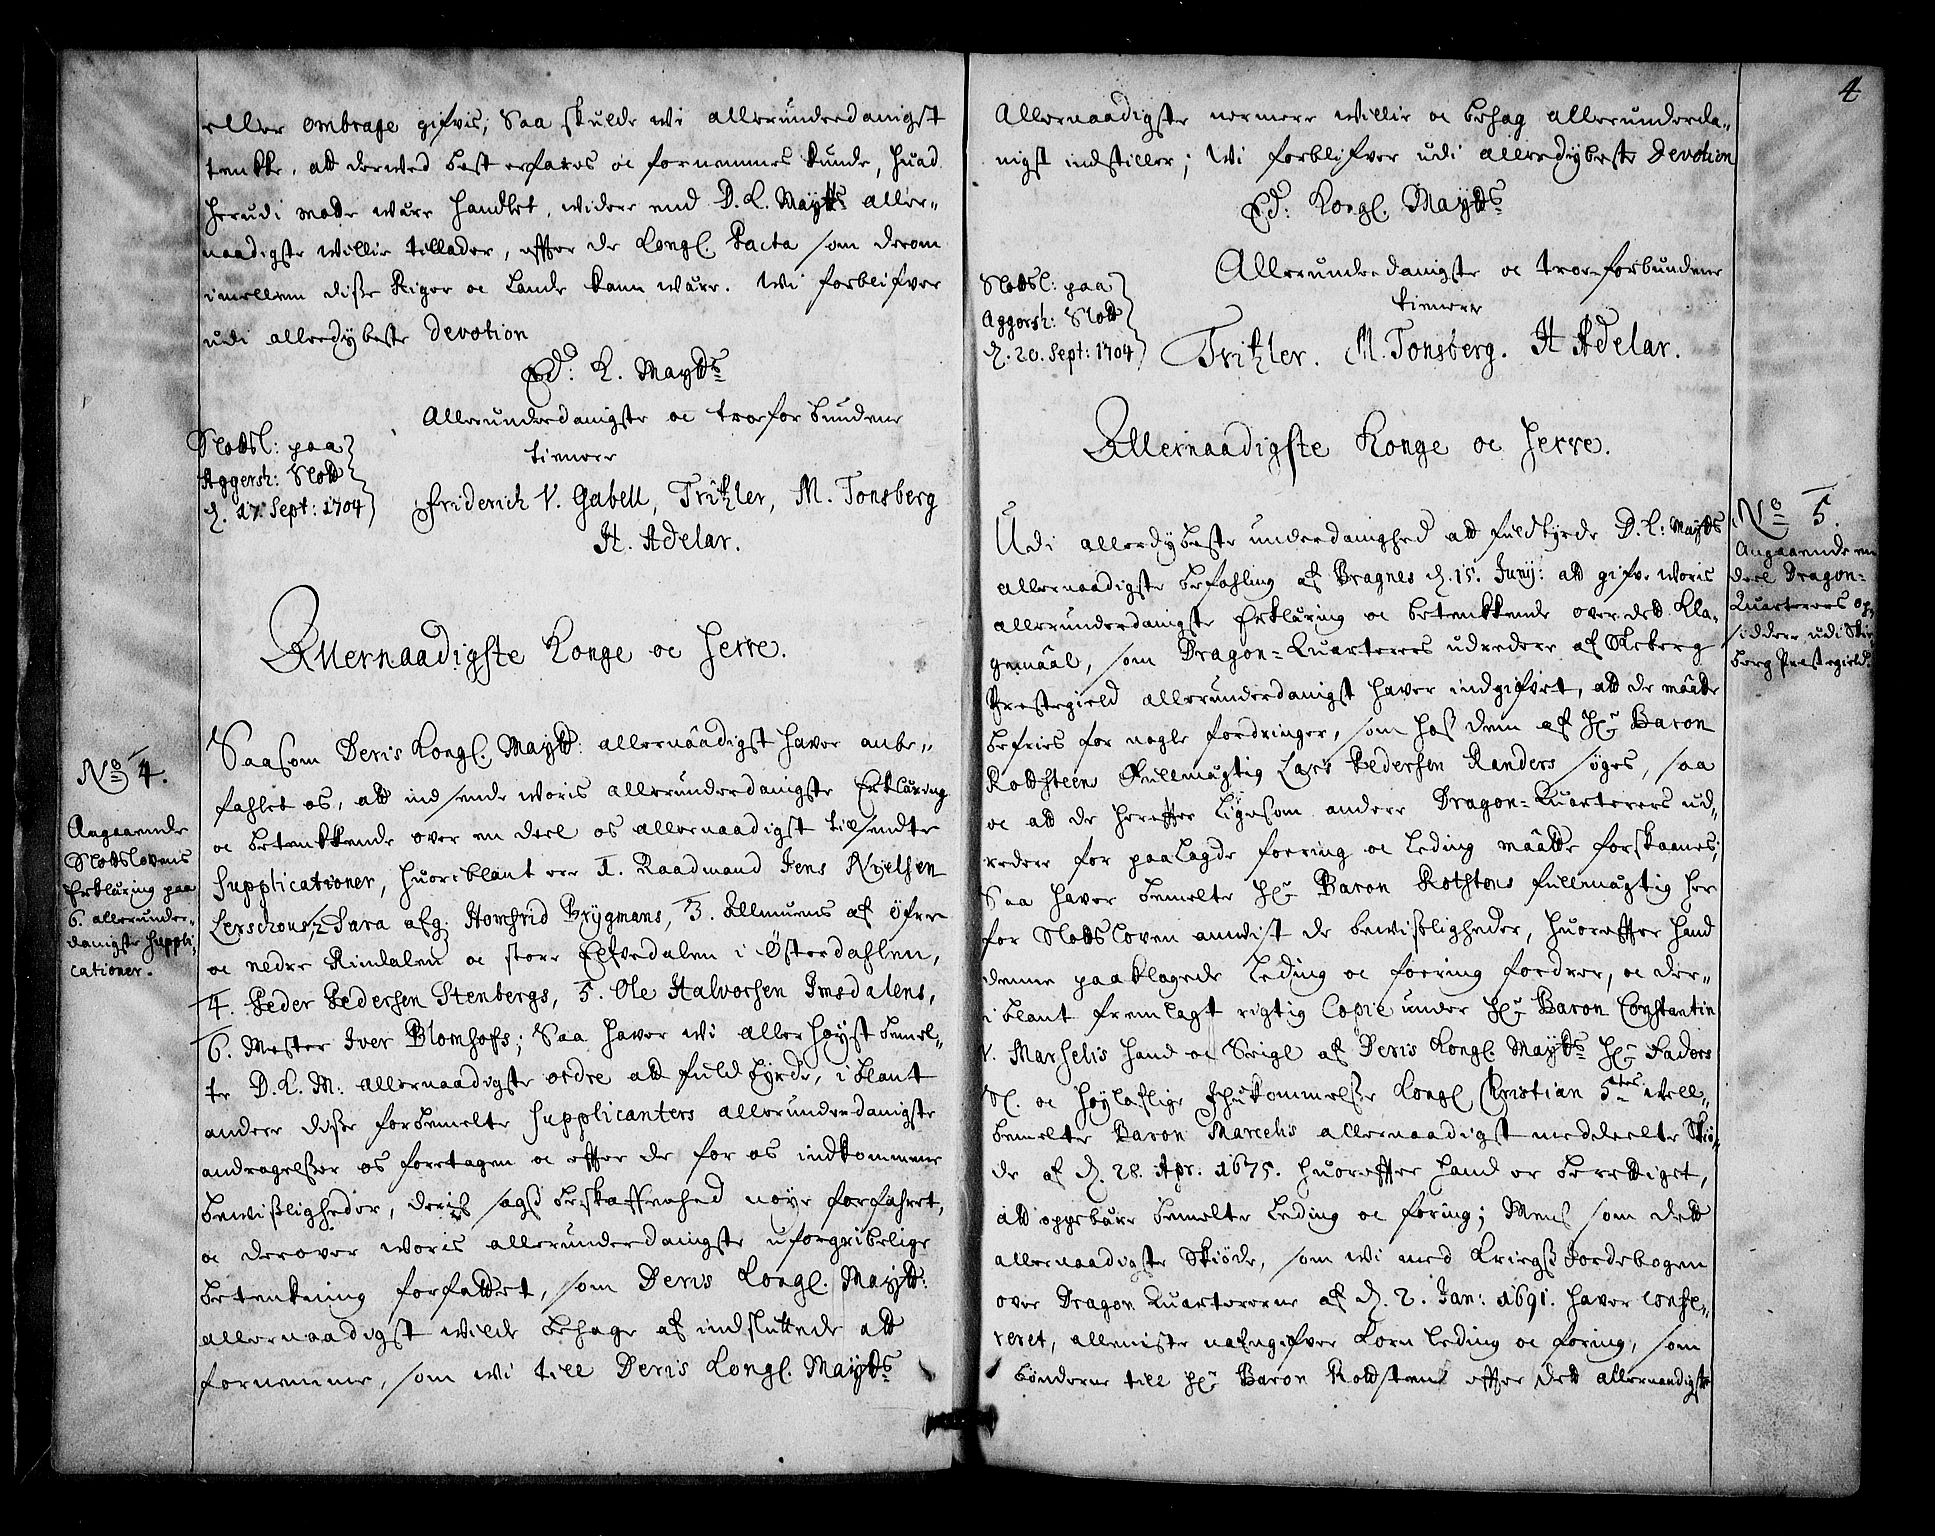 eller ombrage gifvis; Saa skulde wi allerunderdanigst
tenke, att derved best erfares oc fornemmes kunde, huad
herudi motte være handlet, widere end D. K. Maytts aller-
naadigste willie tillader, effter de Kongl. Pacta som derom
imellem disse Riger oc Lande kan være. Wi forblifver
udi allerdybeste Devotion
Ed: K. Maytts
Allerunderdanigste oc troeforbundene
tienere
Slottsl: paa
Aggersh: Slott
d. 17. Sept: 1704
Friderich V. Gabell, Tritzler, M. Tonsberg
H. Adelar.
Allernaadigste Konge oc Herre.
No 4.
Angaaende
Slottslovens
Erklæring paa
6. allerunder-
danigste Suppli-
cationer.
Saasom Deris Kongl. Maytt: allernaadigst haver anbe-
fahlet os, att indsende woris allerunderdanigste Erklæring
oc betenkkende over en deel os allernaadigst tilsendte
Supplicationer, huoriblant ere 1. Raadmand Jens Nielsen
Lerschous, 2. Sara afg: Homfrid Brygmans, 3. Allmuens af Øfre
oc nedre Rindalen oc store Elfvedalen i Østerdahlen,
4. Peder Pedersen Stenbergs, 5. Ole Halvorsen Imsdalens,
6. Mester Iver Blomhofs; Saa haver wi aller høyst bemel-
te D. K. M: allernaadigste ordre att fuldbyrde, iblant
andre disse forbemelte Supplicanters allerunderdanigste
andragelser os foretagen oc effter de for os indkomne
bewisligheder, deris sags beskaffenhed nøye forfahret,
oc derover woris allerunderdanigste uforgribelige
betenkning forfattet, som Deris Kongl. Maytt:
allernaadigst wilde behage af indsluttede att
fornemme, som wi till Deris Kongl. Maytts
4
Allernaadigste nermere willie oc behag allerunderda-
nigst indstiller; Wi forblifver udi allerdybeste Devotion
Ed: Kongl. Maytts
Allerunderdanigste oc troeforbundene
tienere
Slottsl: paa
Aggersh: Slott
d. 20. Sept: 1704
Tritzler. M. Tonsberg. H Adelar.
Allernaadigste Konge oc Herre.
No 5.
Angaaende en
deel Dragon-
Quarterers op-
siddere udi Skie-
berg Prestegield.
Udi allerdybeste underdanighed att fuldbyrde D. K: Maytts
allernaadigste befahling af Bragnes d. 15. Juny: att gifve woris
allerunderdanigste Erklæring oc betenkkende over dett Kla-
gemaal, som Dragon-Quarterers udredere af Skeberg
Prestegield allerunderdanigst haver indgifvet, att de maatte
befries for nogle fordringer, som hos dem af Hr Baron
Rottsteens Fullmægtig Lars Pedersen Randers søges, saa
oc att de hereffter ligesom andere Dragon-Quarterers ud-
redere for paalagde foering oc Leding maatte forskaanes;
Saa haver bemelte Hr Baron Rotstens fullmægtig her
for Slottsloven anwist de bewisligheder, huoreffter hand
denne paaklagede Leding oc foering fordrer, oc der-
iblant fremlagt rigtig Copie under Hr Baron Constantin
v. Marselis hand oc Seigl af Deris Kongl. Maytts Hr Faders
Sl. oc høylaflige Ihukommelse Kongl Christian 5tes well-
bemelte Baron Marcelis allernaadigst meddeelte Skiø-
de af d. 28. Apr: 1675. huoreffter hand er berettiget,
att oppebære bemelte Leding oc foring; Mens som dett
allernaadigste Skiøde, som wi med Kriegs Jordebogen
over Dragon Quartererne af d. 2. Jan: 1691. haver confe-
reret, alleniste nafngifver Korn Leding oc foring, som
bønderne till Hr Baron Rottstens effter dett allernaadigste